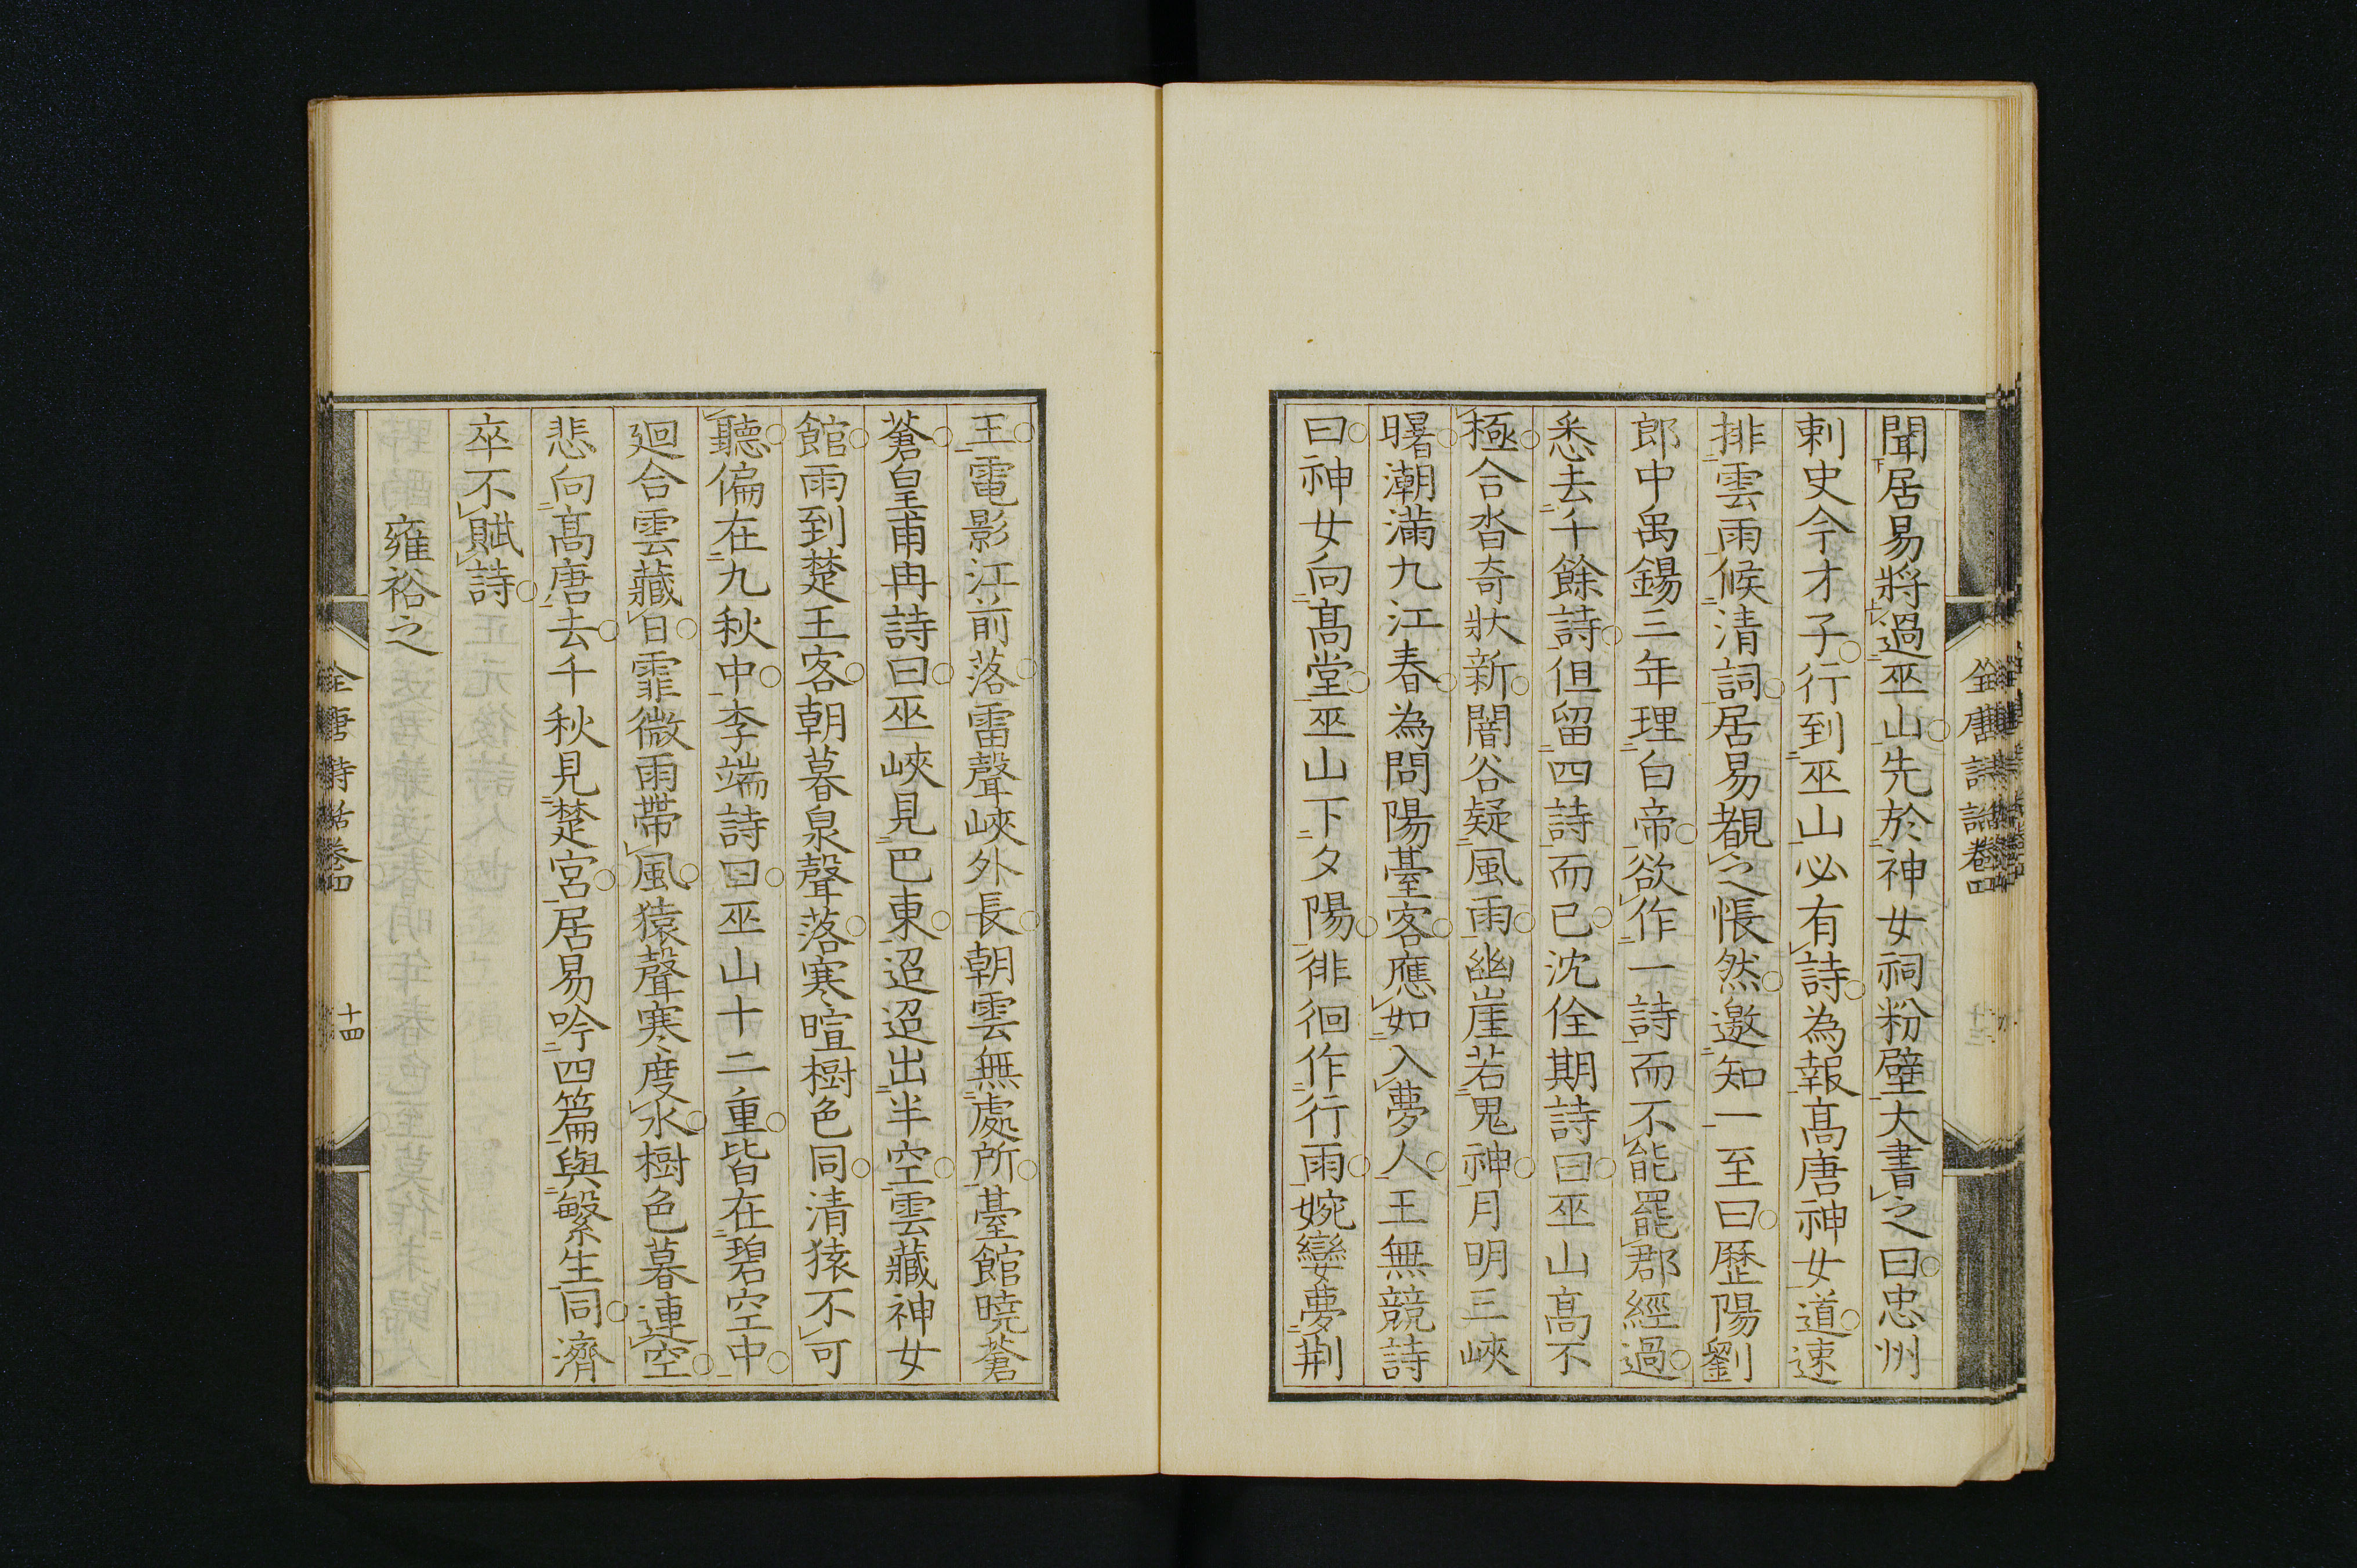 聞居易將過巫山先於神女祠粉壁大書之曰忠州
刺史今才子行到巫山必有詩為報髙唐神女道速
排雲雨候清詞居易覩之悵然邀知一至曰歷陽劉
郎中禹錫三年理白帝欲作一詩而不能罷郡經過
悉去千餘詩但留四詩而已沈佺期詩曰巫山髙不
極合沓奇狀新闇谷疑風雨幽崖若鬼神月明三峽
曙潮滿九江春為問陽臺客應如入夢人王無競詩
曰神女向髙堂巫山下夕陽徘徊作行雨婉孌夢荆
王電影江前落雷聲峽外長朝雲無處所臺館曉蒼
蒼皇甫冉詩曰巫峽見巴東迢迢出半空雲藏神女
館雨到楚王客朝暮泉聲落寒暄樹色同清猿不可
聽偏在九秋中李端詩曰巫山十二重皆在碧空中
廻合雲藏日霏微雨帶風猿聲寒度水樹色暮連空
悲向髙唐去千秋見楚宮居易吟四篇與繁生同濟
卒不賦詩
雍裕之
全唐詩話卷四
十四